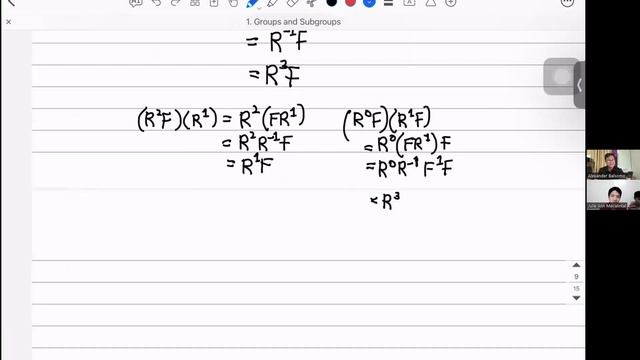 1. Groups and Subgroups
= R⁻¹F
= R³F
(R²F)(R¹) = R²(FR¹)
= R²R⁻¹F
= R¹F
(R⁰F)(R¹F)
= R⁰(FR¹)F
= R⁰R⁻¹F¹F
= R³
9
15
Alexander Balsomo